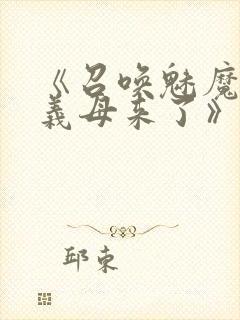 《召唤魅魔
義母来了》
邱束